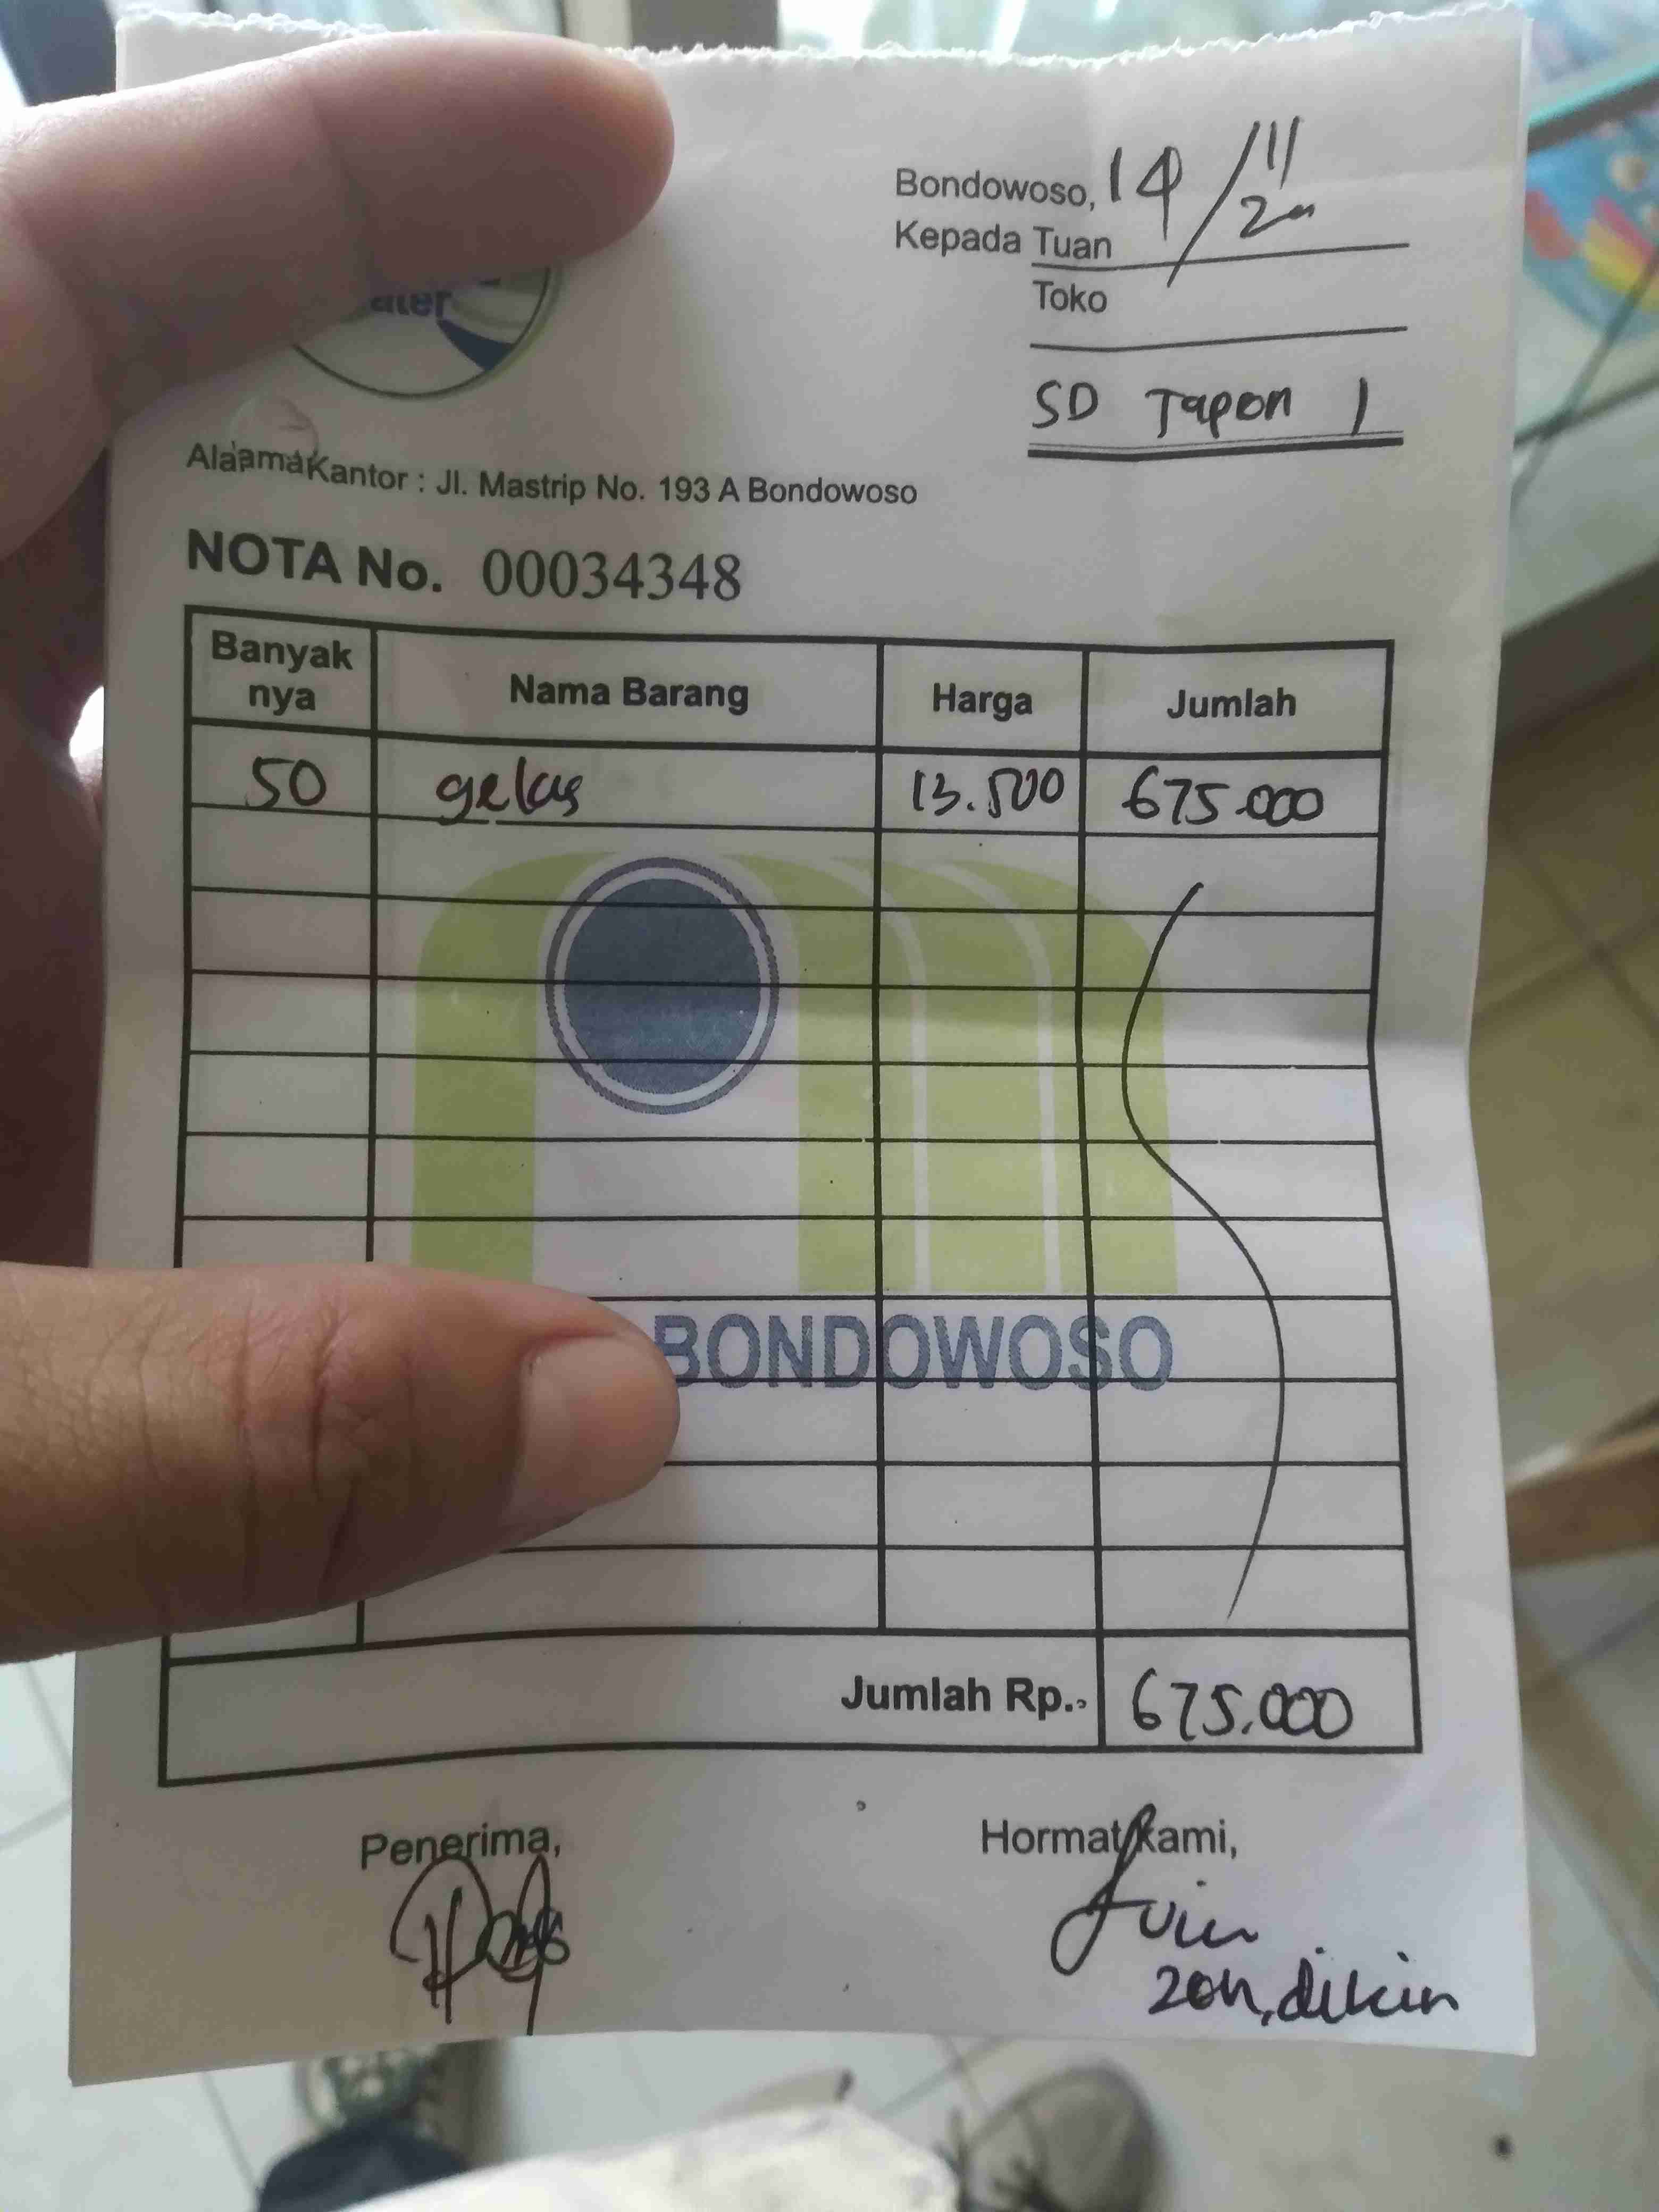 Bondowoso, 14/11
Kepada Tuan
Toko
SD Tapen 1
ater
Alaamakantor : Jl. Mastrip No. 193 A Bondowoso
NOTA No. 00034348
Banyak nya Nama Barang Harga Jumlah
50 gelas 13.500 675.000
BONDOWOSO
Jumlah Rp.. 675.000
Penerima, Hormat kami,